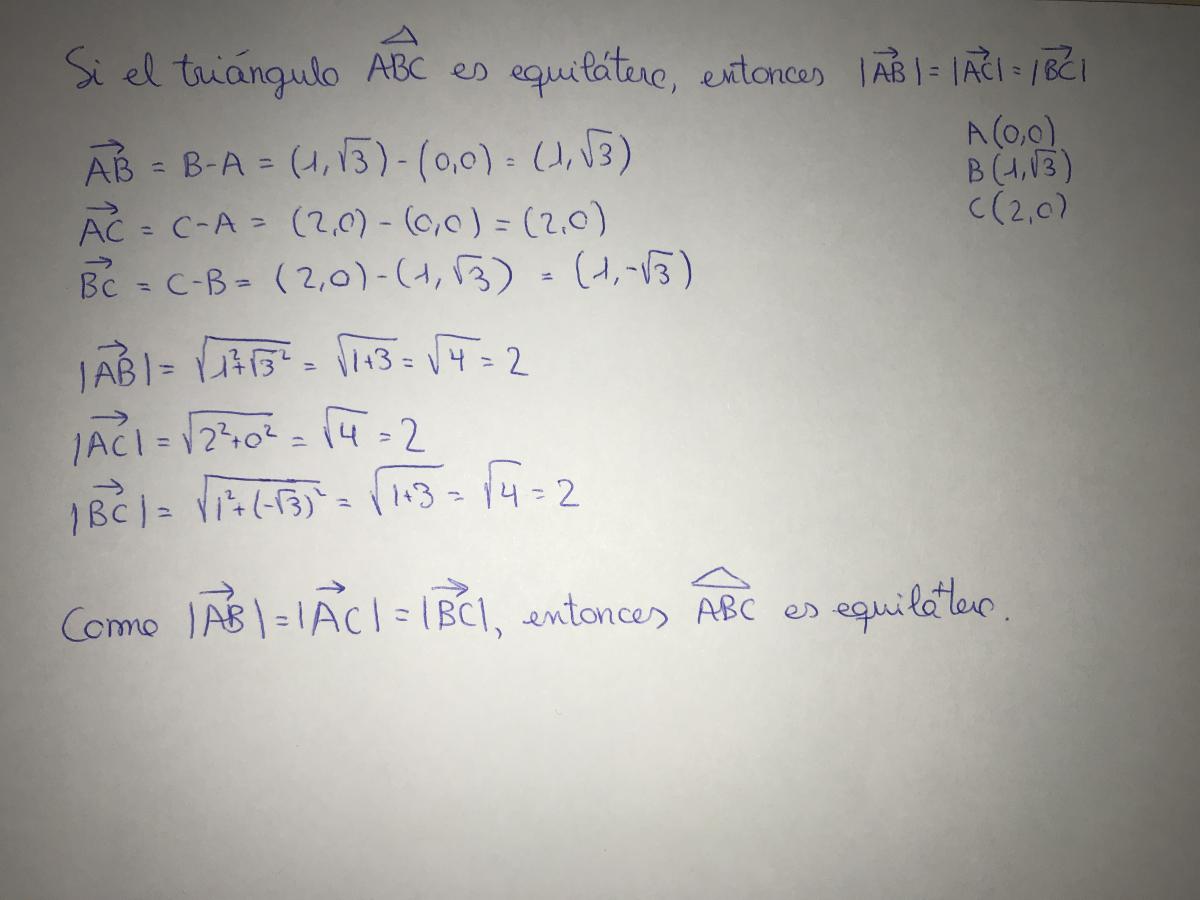 Si el triángulo △ABC es equilátero, entonces |AB⃗| = |AC⃗| = |BC⃗|
A(0,0)
B(1,√3)
C(2,0)
AB⃗ = B-A = (1,√3) - (0,0) = (1,√3)
AC⃗ = C-A = (2,0) - (0,0) = (2,0)
BC⃗ = C-B = (2,0) - (1,√3) = (1,-√3)
|AB⃗| = √(1²+√3²) = √(1+3) = √4 = 2
|AC⃗| = √(2²+0²) = √4 = 2
|BC⃗| = √(1²+(-√3)²) = √(1+3) = √4 = 2
Como |AB⃗| = |AC⃗| = |BC⃗|, entonces △ABC es equilátero.